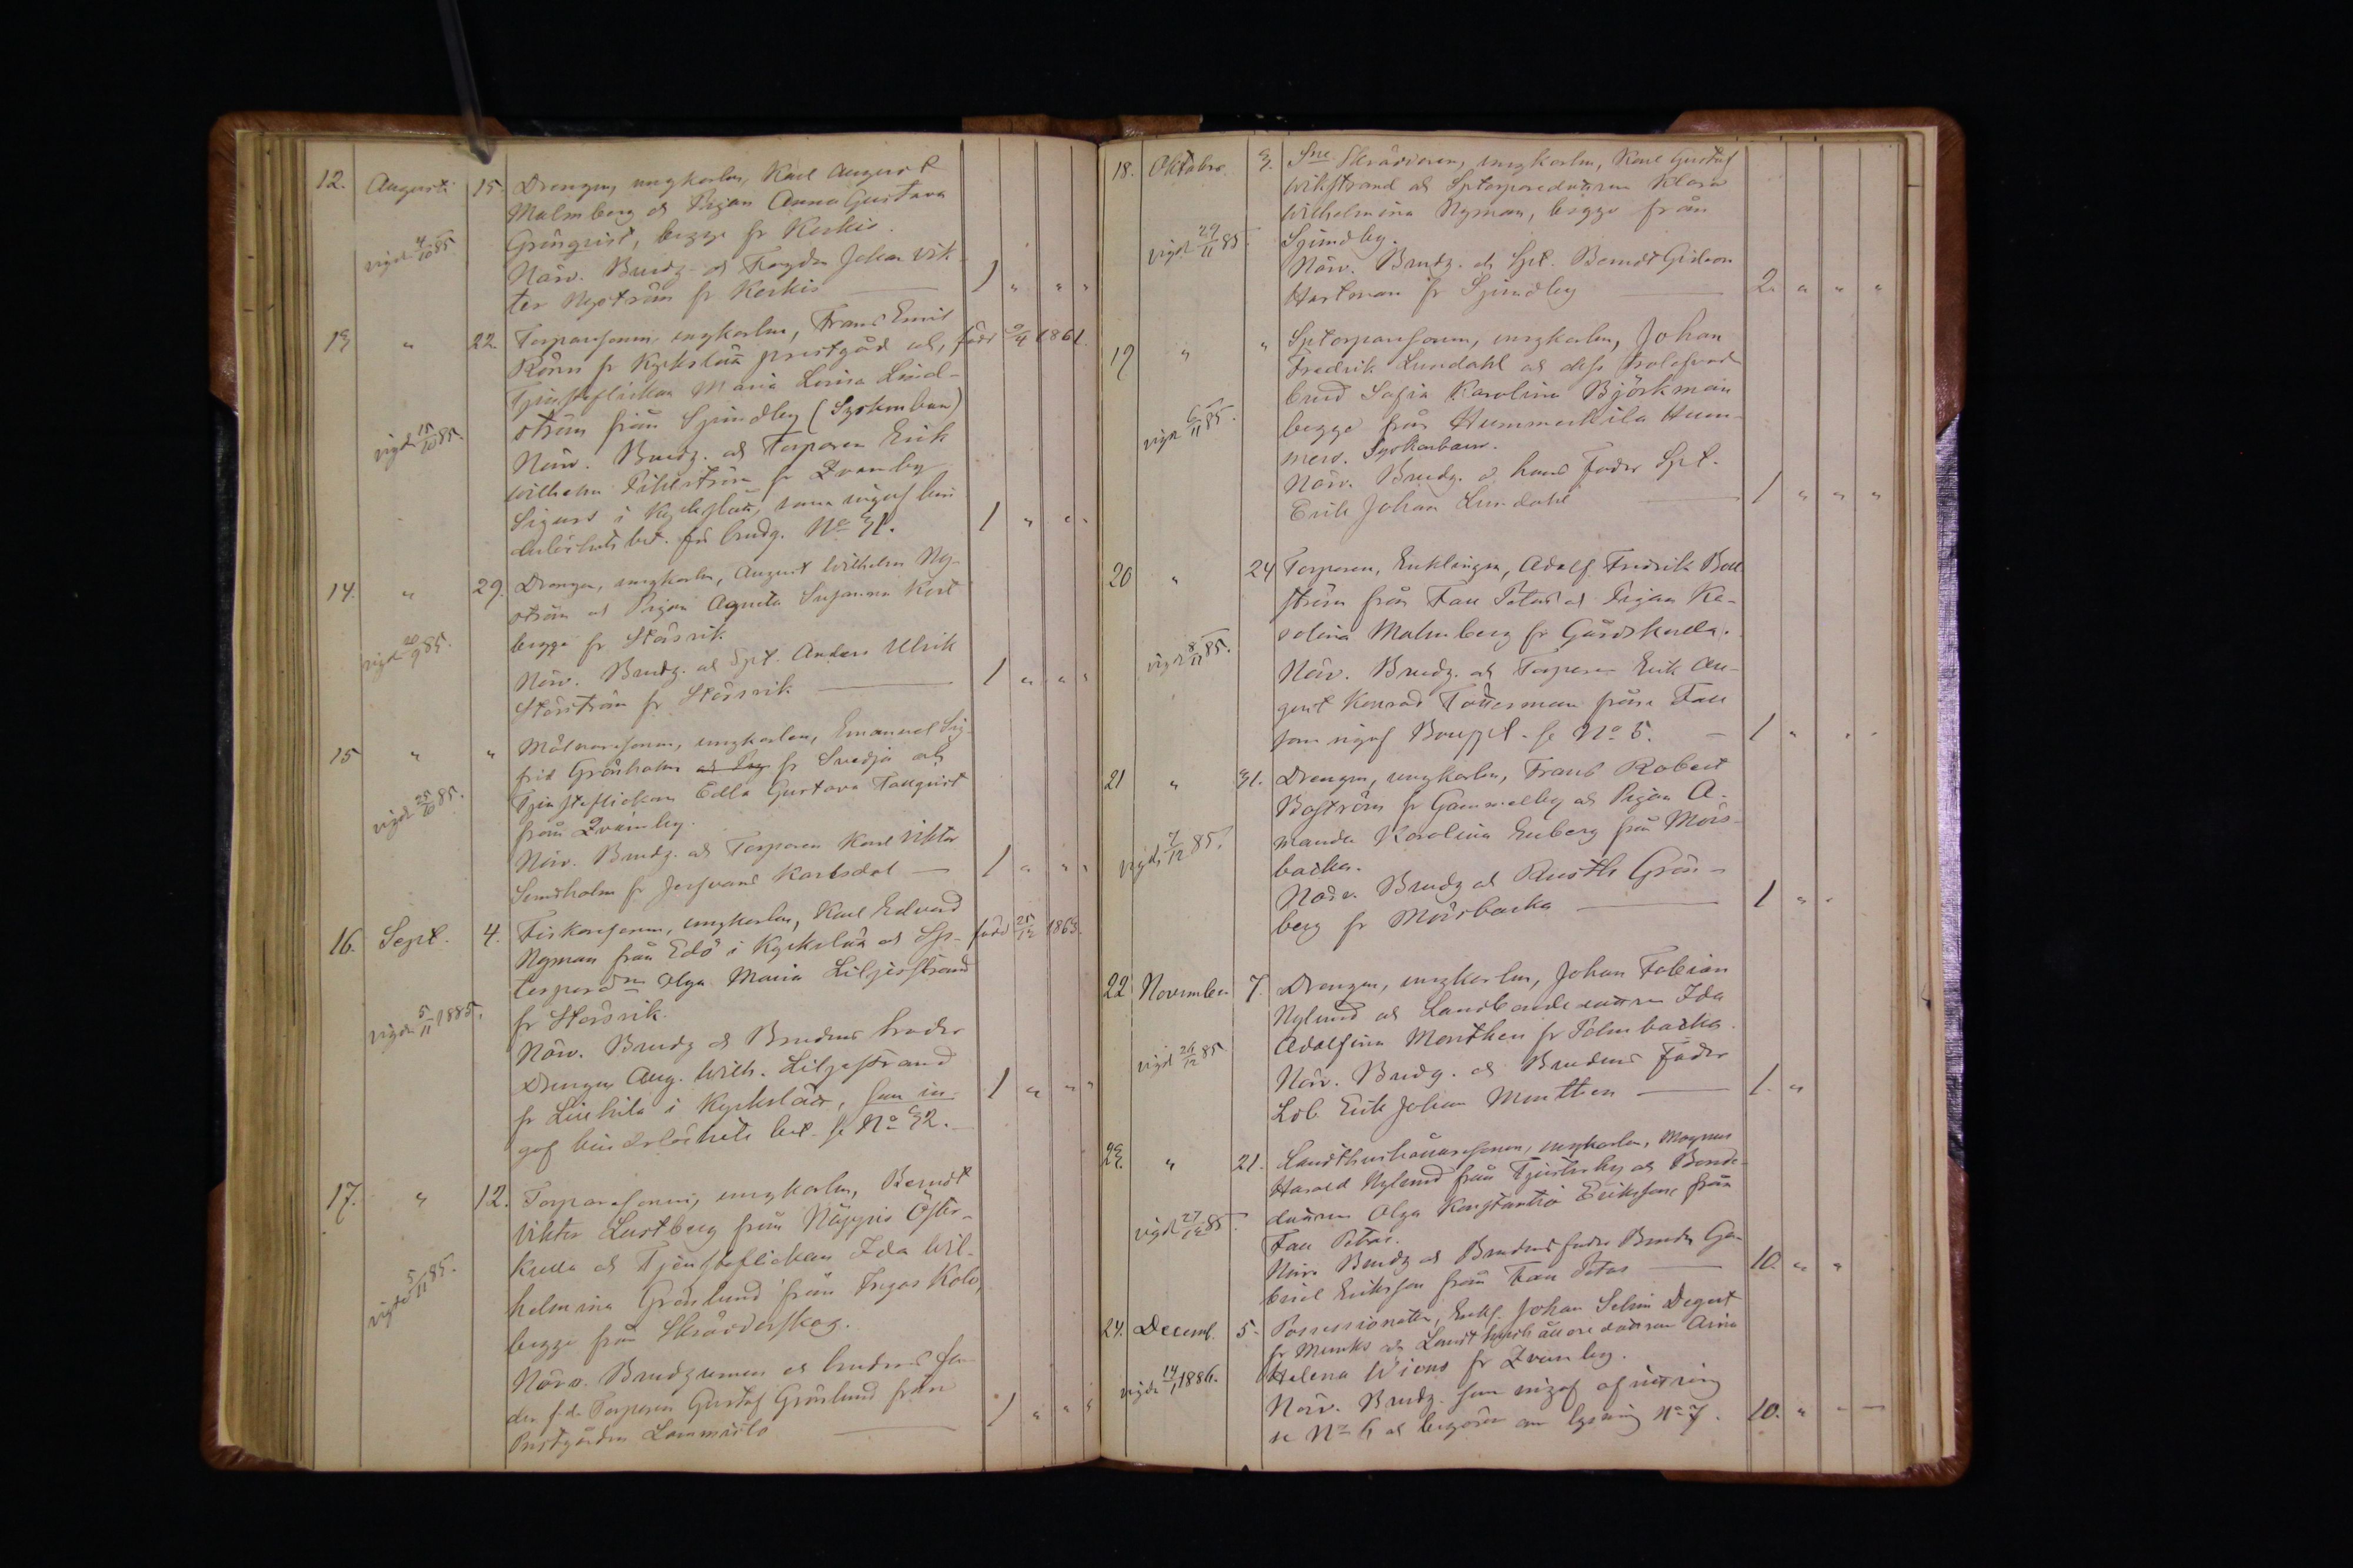 12. Augusti 15. Drengen, ungkarlen, Karl August
Malmberg och Pigan Anna Gustava
Grönqvist, begge fr Keskis.
vigde 4/10 85. Närv. Brudg. och Torpden Johan Vik-
tor Nyström fr Keskis — 1 " " "
13 " 22. Torparesonen, ungkarlen, Frans Emil född 9/4 1861.
Rönn fr Kyrkslätt prestgård och,
Tjensteflickan Maria Lovisa Lind-
ström från Sjundby (Syskonbarn)
vigde 15/10 85. Närv. Brudg. och Torparen Erik
Wilhelm Fihlström fr Qvarnby
Sigurs i Kyrkslätt, som ingaf hin
derlöshets bet. för brudg. No 31. 1 " " "
14. " 29. Drengen, ungkarlen, August Wilhelm Ny-
ström och Pigan Agneta Susanna Kort
begge fr Störsvik
vigde 20/9 85. Närv. Brudg. och Spt. Anders Ulrik
Störström fr Störsvik — 1 " " "
15 " " Mölnaresonen, ungkarlen, Emanuel Sig-
frid Grönholm och Pig fr Svedja och
Tjensteflickan Edla Gustava Tallqvist
vigde 25/10 85. från Qvarnby.
Närv. Brudg. och Torparen Karl Viktor
Sundholm fr Karlsdal — 1 " " "
16. Sept. 4. Fiskaresonen, ungkarlen, Karl Edvard född 25/12 1863.
Nyman från Edö i Kyrkslätt och Sp-
torpared:n Olga Maria Liljestrand
fr Störsvik.
vigde 5/11 1885. Närv. Brudg och Brudens broder
Drengen Aug. Wilh. Liljestrand
fr i Kyrkslätt, som in-
gaf hinderlöshets bet. se No 32. — 1 " " "
17. " 12. Torparesonen, ungkarlen, Berndt
Viktor Lustberg från Näppis Öfver-
kulla och Tjensteflickan Ida Wil-
helmina Grönlund från Ingas Kolo,
begge från Skräddarskog.
vigde 5/11 85. Närv. Brudgummen och brudens fa-
der f.d. Torparen Gustaf Grönlund från
Prestgården — 1 " " "
18. Oktober 3. Sne Skräddaren, ungkarlen, Karl Gustaf
Wikstrand och Sptorparedottren Klara
Wilhelmina Nyman, begge från
vigde 29/11 85. Sjundby.
Närv. Brudg. och Spt. Berndt Gideon
Hartman fr Sjundby — 2. " " "
19 " " Sptorparesonen, ungkarlen, Johan
Fredrik Lundahl och dess trolofvade
brud Sofia Karolina Björkman
vigde 6/11 85. begge från Hummerkila Hum-
mers. Syskonbarn.
Närv. Brudg. o hans fader Spt.
Erik Johan Lundahl — 1 " " "
20 " 24 Torparen, Enklingen, Adolf Fredrik Boll
ström från Fall Petas och Pigan Ka-
rolina Malmberg fr Gårdskulla.
vigde 8/11 85. Närv. Brudg. och Torparen Erik Au-
gust Konrad Totterman från Fall
som ingaf Bouppt. se No 5. — 1 " " "
21 " 31. Drengen, ungkarlen, Frans Robert
Boström fr Gammelby och Pigan A-
manda Karolina Enberg från Mörs-
vigde 2/12 85. backa.
Närv. Brudg och Rusth Grön-
berg fr Mörsbacka — 1 " "
22 November 7. Drengen, ungkarlen, Johan Fabian
Nylund och Landbondedottren Ida
Adolfina Monthen fr Palmbacka
vigde 26/12 85 Närv. Brudg. och Brudens fader
Ldb. Erik Johan Monthen — 1. "
23. " 21. Landthushållaresonen, ungkarlen, Magnus
Harald Nylund från Tjusterby och Bonde-
dottren Olga Konstantia Eriksson från
vigde 27/12 85. Fall Petas.
Närv Brudg och Brudens fader Bonden Ga-
briel Eriksson från Fall Petas — 10. " "
24. Decemb. 5. Possessionaten, Enkl. Johan Selim Degert
fr Munks och Landthushålleredottren Aina
vigde 14/1 1886. Helena Wions fr Qvarnby.
Närv. Brudg. som ingaf afvittring
se No 6 och begäran om lysning No 7. 10. " " —